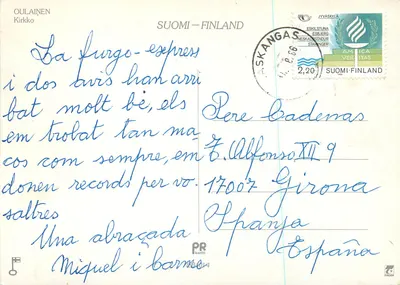 OULAINEN
Kirkko
SUOMI – FINLAND
La furgo-express
i dos avis han arri
bat molt bé, els
em trobat tan ma
cos com sempre, em
donen records per vo-
saltres
Una abraçada
Miquel i Carme
PR
KANGAS
2,20
SUOMI-FINLAND
Pere Cadenas
C. Alfonso XII 9
17007 Girona
Spanja
España